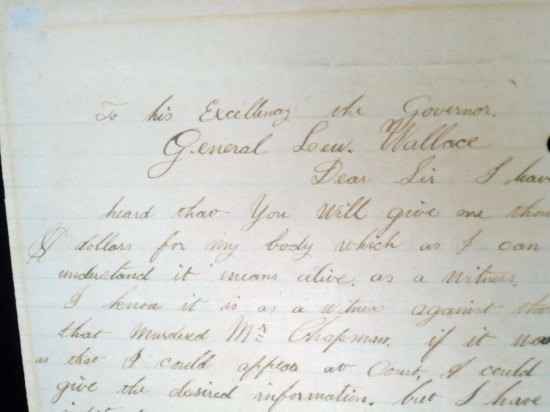 To his Excellency the Governor.
General Lew. Wallace
Dear Sir I have
heard that You Will give one thou
$ dollars for my body which as I can
understand it means alive. as a Witness.
I know it is as a witness against tho
that murdered Mr Chapman. if it wa
as that I could appear at Court. I could
give the desired information. but I have